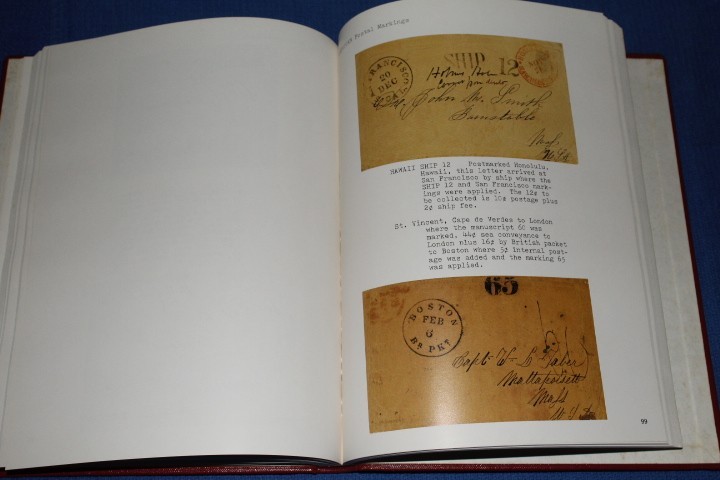 Postal Markings
FRANCISCO
20
DEC
CAL
SHIP 12
John M. Smith
Barnstable
HAWAII SHIP 12 Postmarked Honolulu,
Hawaii, this letter arrived at
San Francisco by ship where the
SHIP 12 and San Francisco mark-
ings were applied. The 12¢ to
be collected is 10¢ postage plus
2¢ ship fee.
St. Vincent, Cape de Verdes to London
where the manuscript 60 was
marked. 44¢ sea conveyance to
London plus 16¢ by British packet
to Boston where 5¢ internal post-
age was added and the marking 65
was applied.
65
BOSTON
FEB
6
Br. PKt.
Capt. W. L. Taber
Mattapoisett
Mass
99